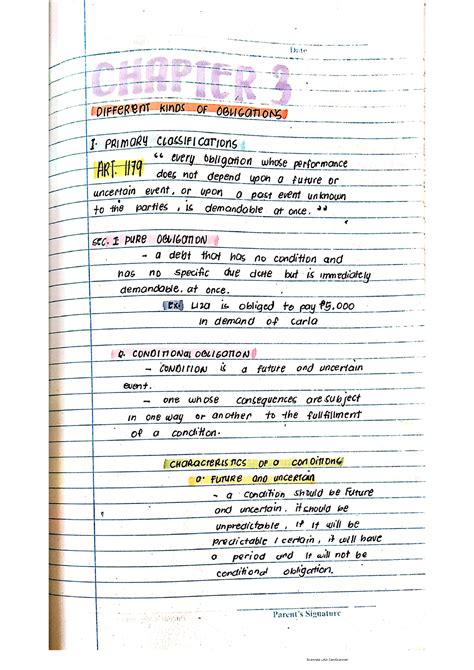 Date
CHAPTER 3
DIFFERENT KINDS OF OBLIGATIONS
I. PRIMARY CLASSIFICATIONS
ART. 1179 “ every obligation whose performance
does not depend upon a future or
uncertain event, or upon a past event unknown
to the parties, is demandable at once. ”
SEC. I PURE OBLIGATION
- a debt that has no condition and
has no specific due date but is immediately
demandable. at once.
EX: LIZA is obliged to pay ₱5,000
in demand of carla
a. CONDITIONAL OBLIGATION
- CONDITION is a future and uncertain
event.
- one whose consequences are subject
in one way or another to the fulfillment
of a condition.
CHARACTERISTICS OF A CONDITIONS
a. FUTURE AND UNCERTAIN
- a condition should be Future
and uncertain. it should be
unpredictable, if it will be
predictable / certain, it will have
a period and it will not be
conditional obligation.
Parent's Signature
Scanned with CamScanner